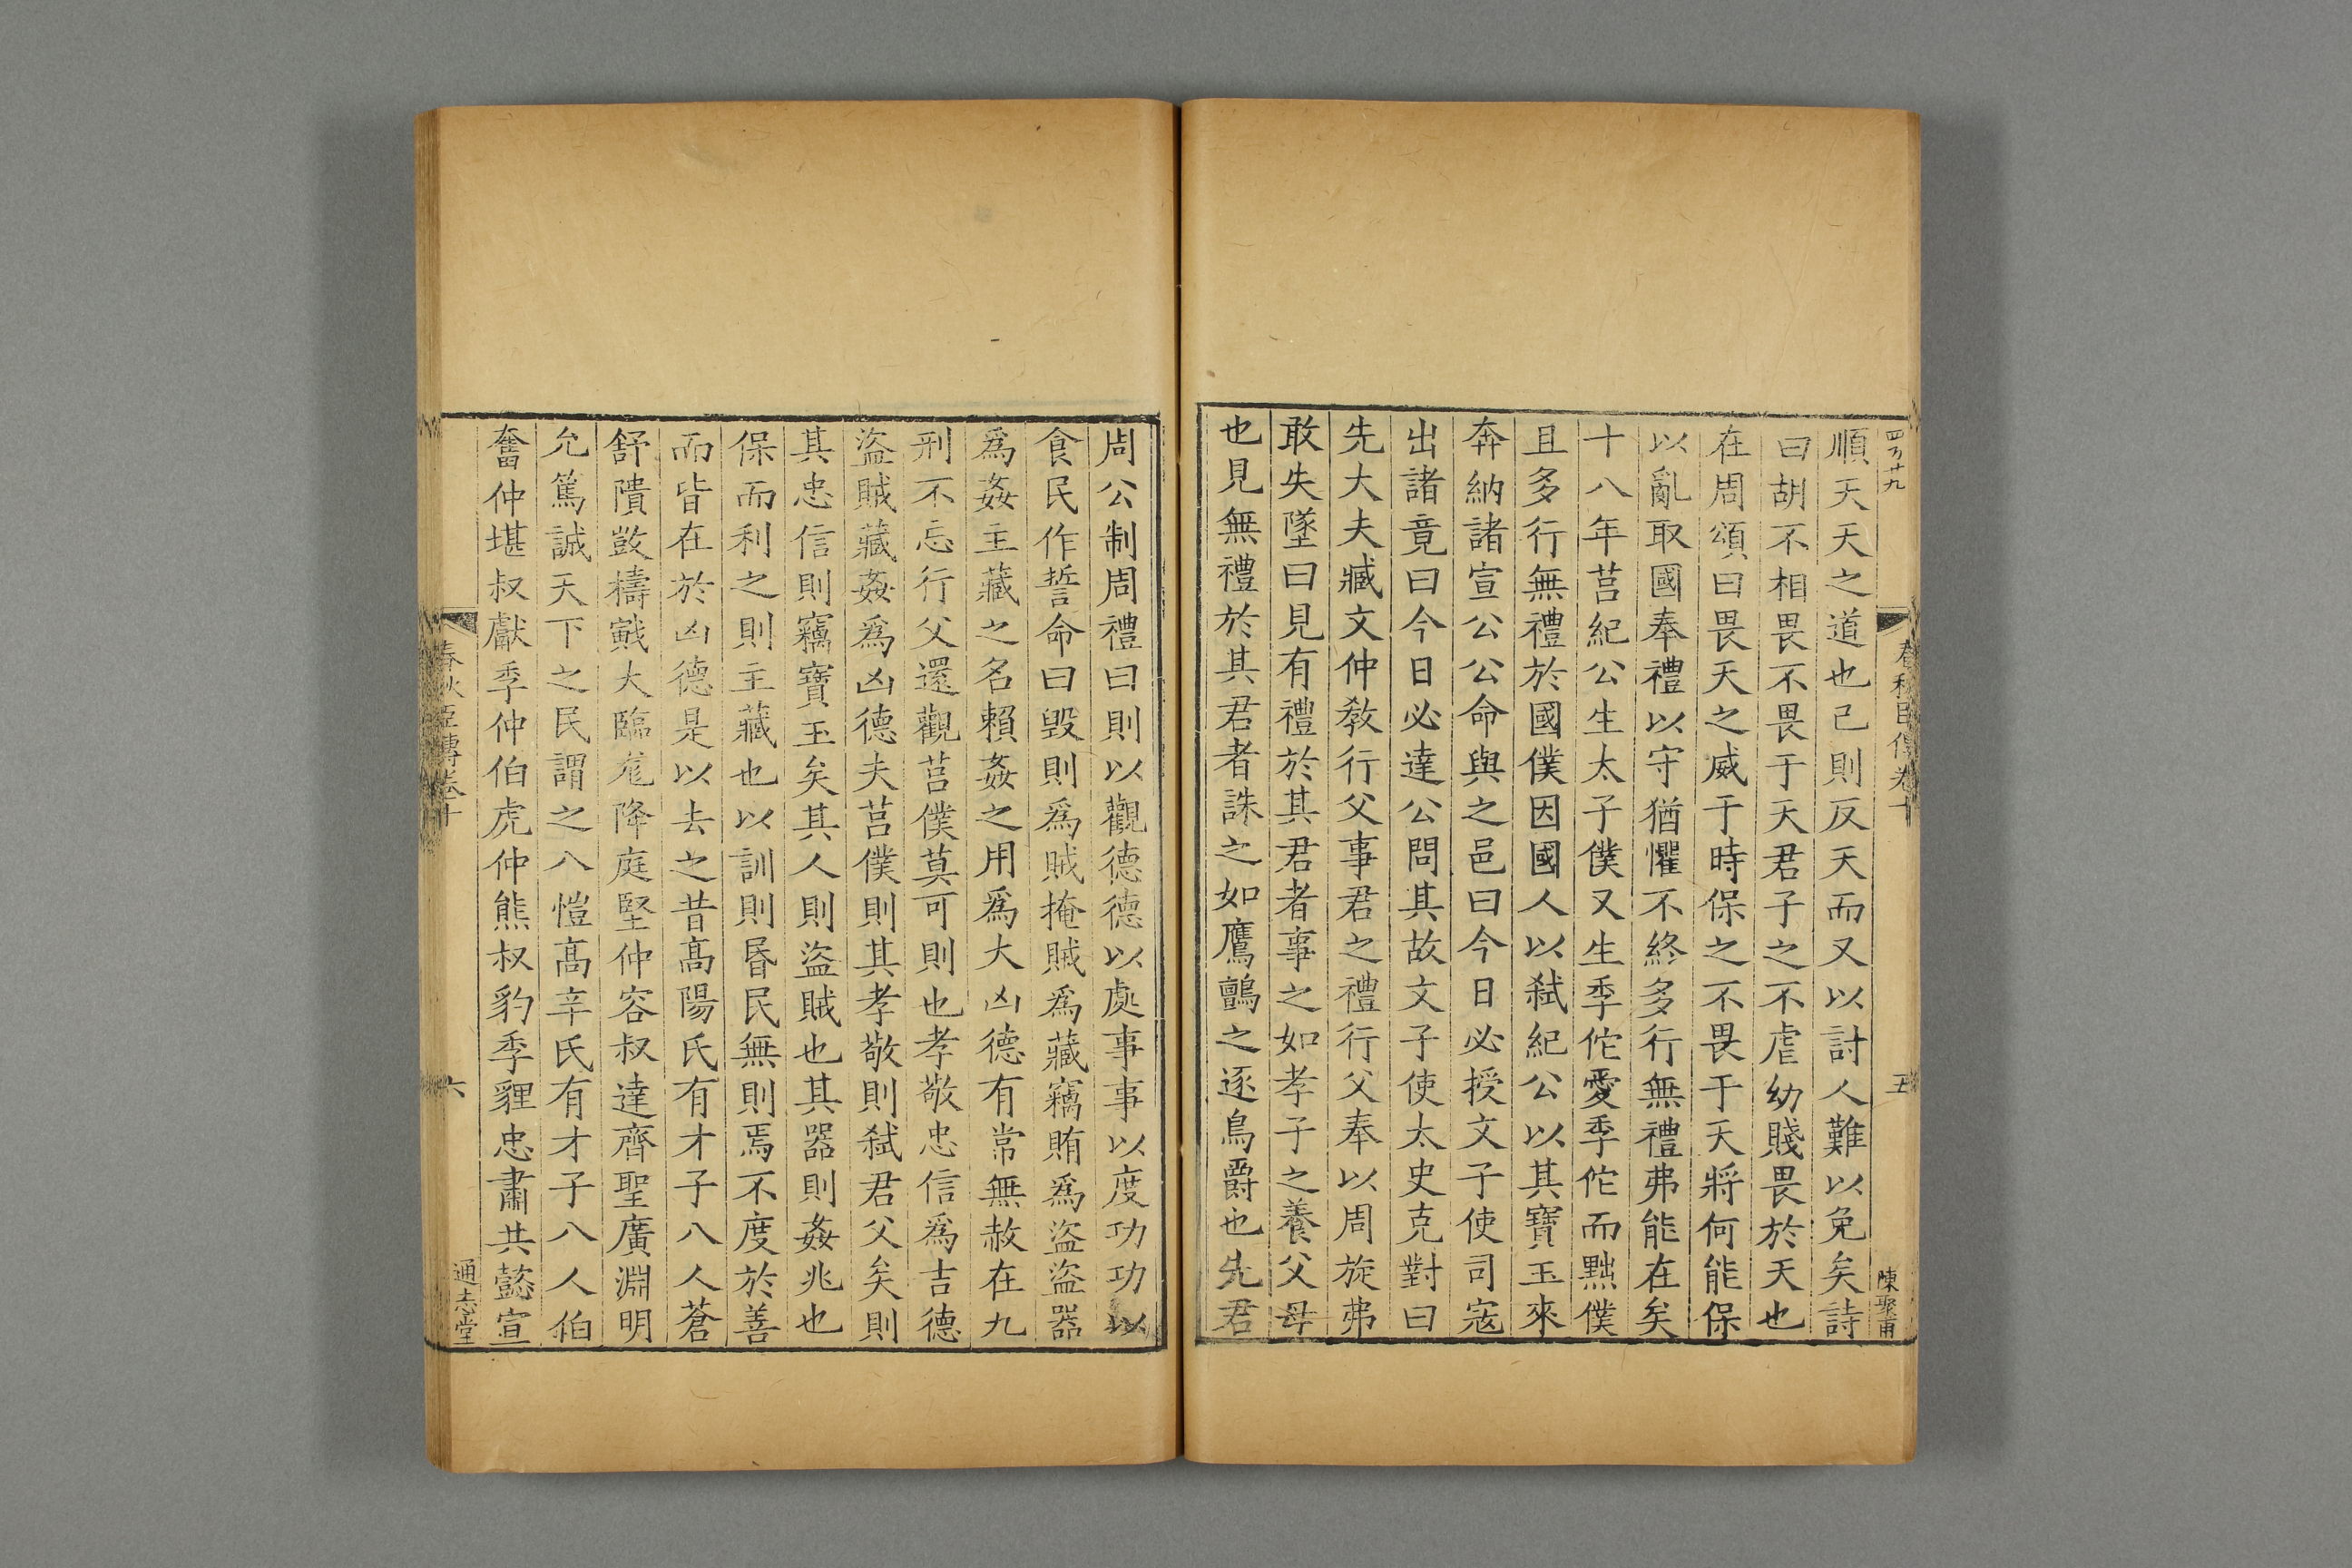 四百廿九
春秋臣傳卷十
五
陳聚甫
順天天之道也己則反天而又以討人難以免矣詩
曰胡不相畏不畏于天君子之不虐幼賤畏於天也
在周頌曰畏天之威于時保之不畏于天將何能保
以亂取國奉禮以守猶懼不終多行無禮弗能在矣
十八年莒紀公生太子僕又生季佗愛季佗而黜僕
且多行無禮於國僕因國人以弑紀公以其寶玉來
奔納諸宣公公命與之邑曰今日必授文子使司寇
出諸竟曰今日必達公問其故文子使太史克對曰
先大夫臧文仲敎行父事君之禮行父奉以周旋弗
敢失墜曰見有禮於其君者事之如孝子之養父母
也見無禮於其君者誅之如鷹鸇之逐鳥爵也先君
周公制周禮曰則以觀德德以處事事以度功功以
食民作誓命曰毀則爲賊掩賊爲藏竊賄爲盜盜器
爲姦主藏之名賴姦之用爲大凶德有常無赦在九
刑不忘行父還觀莒僕莫可則也孝敬忠信爲吉德
盜賊藏姦爲凶德夫莒僕則其孝敬則弑君父矣則
其忠信則竊寶玉矣其人則盜賊也其器則姦兆也
保而利之則主藏也以訓則昬民無則焉不度於善
而皆在於凶德是以去之昔髙陽氏有才子八人蒼
舒隤敳檮戭大臨尨降庭堅仲容叔達齊聖廣淵明
允篤誠天下之民謂之八愷髙辛氏有才子八人伯
奮仲堪叔獻季仲伯虎仲熊叔豹季貍忠肅共懿宣
春秋臣傳卷十
六
通志堂